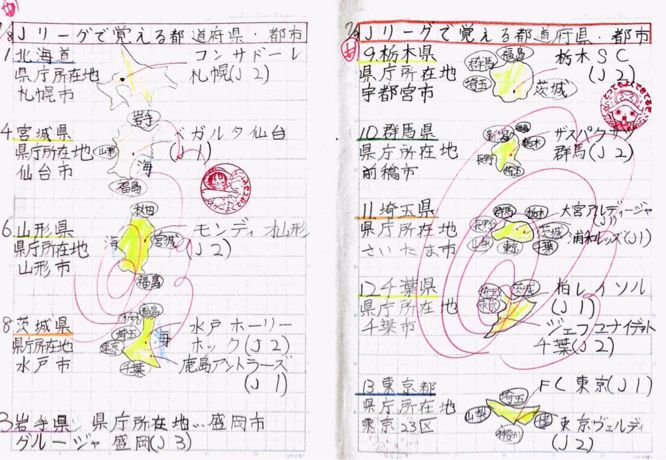 7/8 Jリーグで覚える都道府県・都市
1.北海道
県庁所在地
札幌市
コンサドーレ
札幌(J2)
4.宮城県
県庁所在地
仙台市
岩手
山形
海
福島
ガルタ仙台
(J1)
6.山形県
県庁所在地
山形市
秋田
海
宮城
福島
モンディオ山形
(J2)
8.茨城県
県庁所在地
水戸市
福島
埼玉
千葉
海
水戸ホーリー
ホック(J2)
鹿島アントラーズ
(J1)
3岩手県 県庁所在地…盛岡市
グルージャ盛岡(J3)
Jリーグで覚える都道府県・都市
9.栃木県
県庁所在地
宇都宮市
福島
群馬
埼玉
茨城
栃木SC
(J2)
10.群馬県
県庁所在地
前橋市
新潟
栃木
長野
埼玉
ザスパクサツ
群馬(J2)
11.埼玉県
県庁所在地
さいたま市
群馬
栃木
長野
茨城
山梨
東京
千葉
大宮アルディージャ
(J1)
浦和レッズ(J1)
12.千葉県
県庁所在地
千葉市
埼玉
茨城
東京
柏レイソル
(J1)
ジェフユナイテッド
千葉(J2)
13.東京都
県庁所在地
東京23区
埼玉
山梨
千葉
神奈川
FC東京(J1)
東京ヴェルディ
(J2)